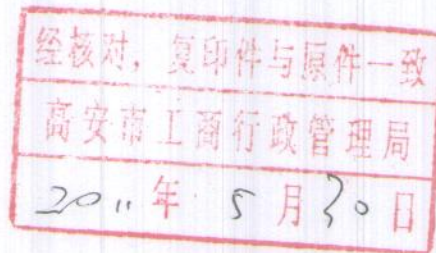 经核对，复印件与原件一致
高安市工商行政管理局
2011年5月30日